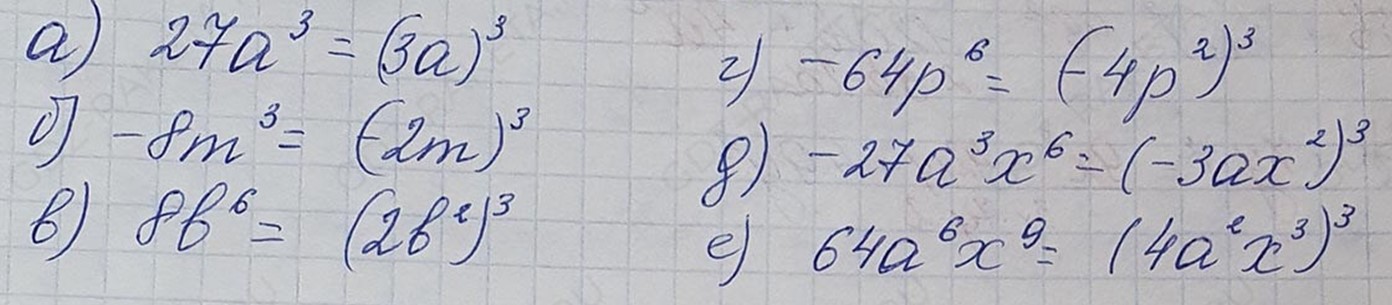 а) 27a³ = (3a)³
б) -8m³ = (-2m)³
в) 8b⁶ = (2b²)³
г) -64p⁶ = (-4p²)³
д) -27a³x⁶ = (-3ax²)³
е) 64a⁶x⁹ = (4a²x³)³